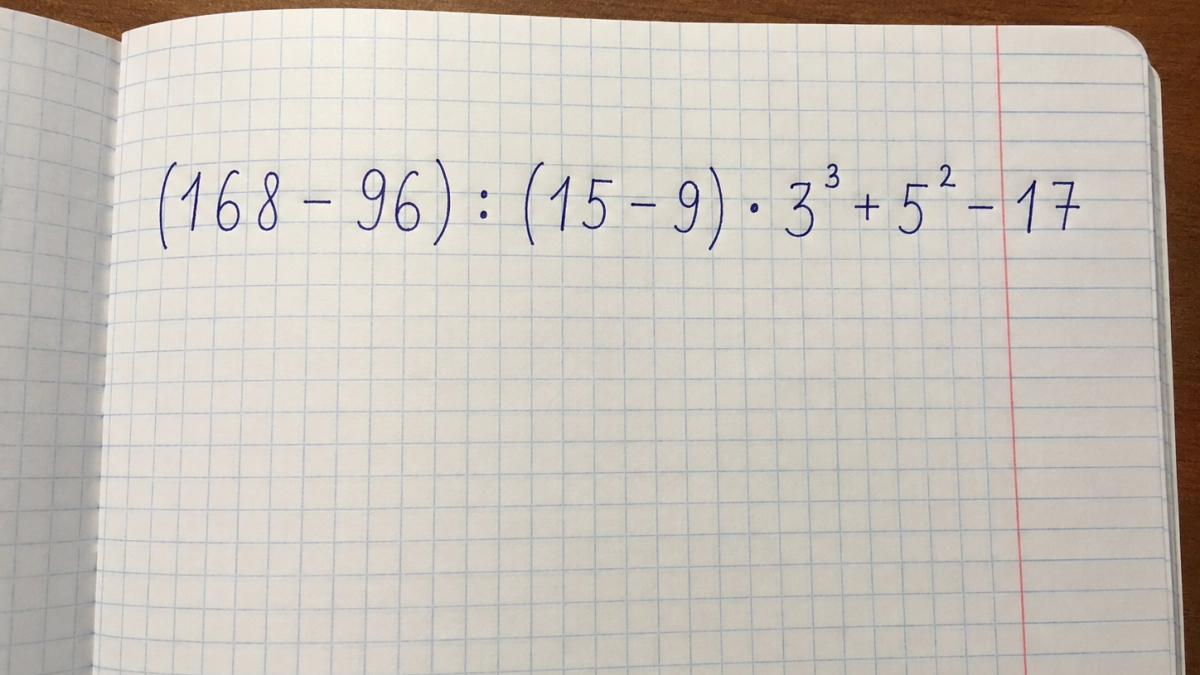 (168 − 96) : (15 − 9) · 3³ + 5² − 17